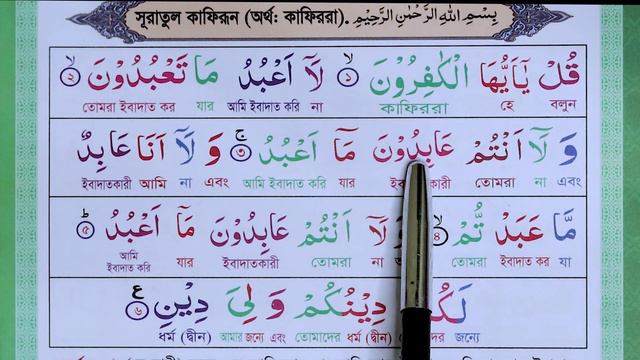 সূরাতুল কাফিরূন (অর্থ: কাফিররা). بِسْمِ اللهِ الرَّحْمٰنِ الرَّحِيْمِ
قُلْ يٰۤاَيُّهَا الْكٰفِرُوْنَ ۙ﴿١﴾ لَاۤ اَعْبُدُ مَا تَعْبُدُوْنَ ۙ﴿٢﴾
বলুন হে কাফিররা না আমি ইবাদাত করি যার তোমরা ইবাদাত কর
وَ لَاۤ اَنْتُمْ عَابِدُوْنَ مَاۤ اَعْبُدُ ۚ﴿٣﴾ وَ لَاۤ اَنَا عَابِدٌ
এবং না তোমরা যার আমি ইবাদাত করি এবং না আমি ইবাদাতকারী
مَّا عَبَدْ تُّمْ ۙ﴿٤﴾ لَاۤ اَنْتُمْ عَابِدُوْنَ مَاۤ اَعْبُدُ ؕ﴿٥﴾
যা ইবাদাত কর তোমরা না তোমরা ইবাদাতকারী যার আমি ইবাদাত করি
لَكُمْ دِيْنُكُمْ وَ لِىَ دِيْنِ ﴿٦﴾ ع
জন্যে ধর্ম (দ্বীন) তোমাদের এবং জন্যে আমার ধর্ম (দ্বীন)